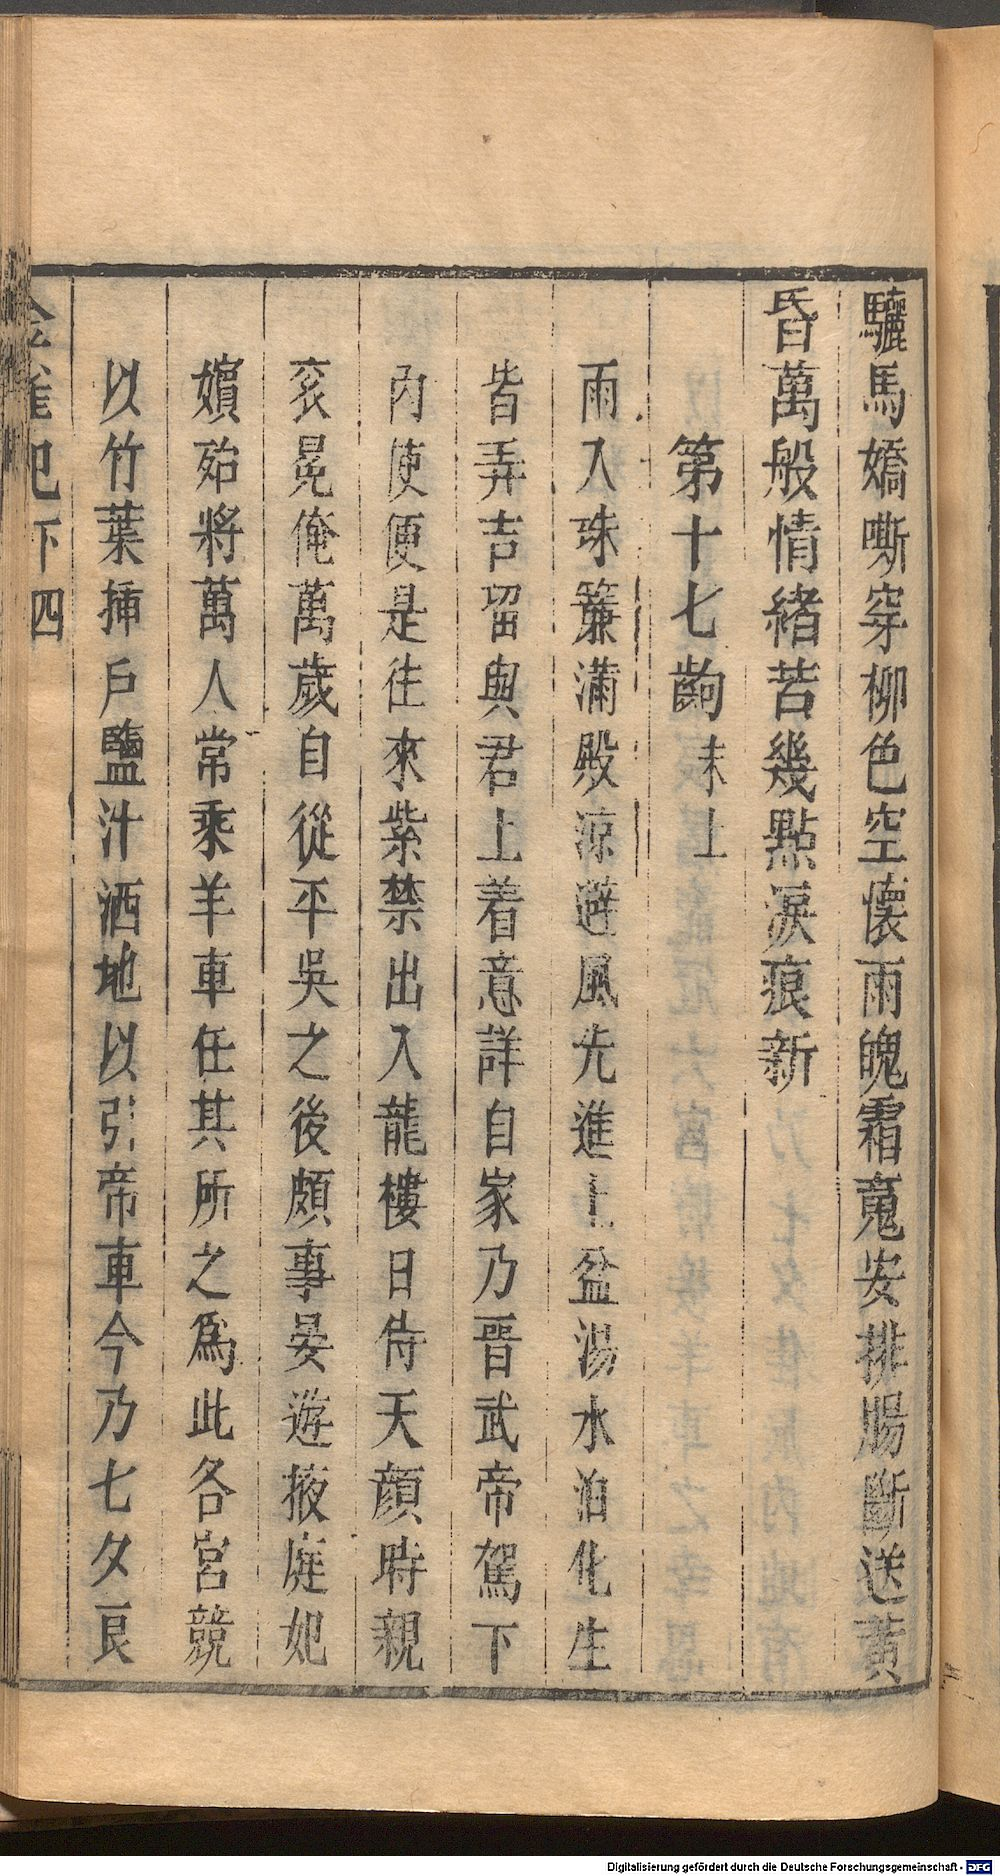 驪馬嬌嘶穿柳色空懷雨魄霜䰟安排腸斷送黃
昏萬般情緒苦幾點淚痕新
第十七齣 末上
雨入珠簾滿殿凉避風先進上盆湯水泊化生
皆弄吉留與君王着意詳自家乃晉武帝駕下
內使便是往來紫禁出入龍樓日侍天顏時親
衮冕俺萬歲自從平吳之後頗事晏遊掖庭妃
嬪殆將萬人常乘羊車任其所之爲此各宮競
以竹葉揷戶鹽汁洒地以引帝車今乃七夕良
金雀記下 四
Digitalisierung gefördert durch die Deutsche Forschungsgemeinschaft - DFG